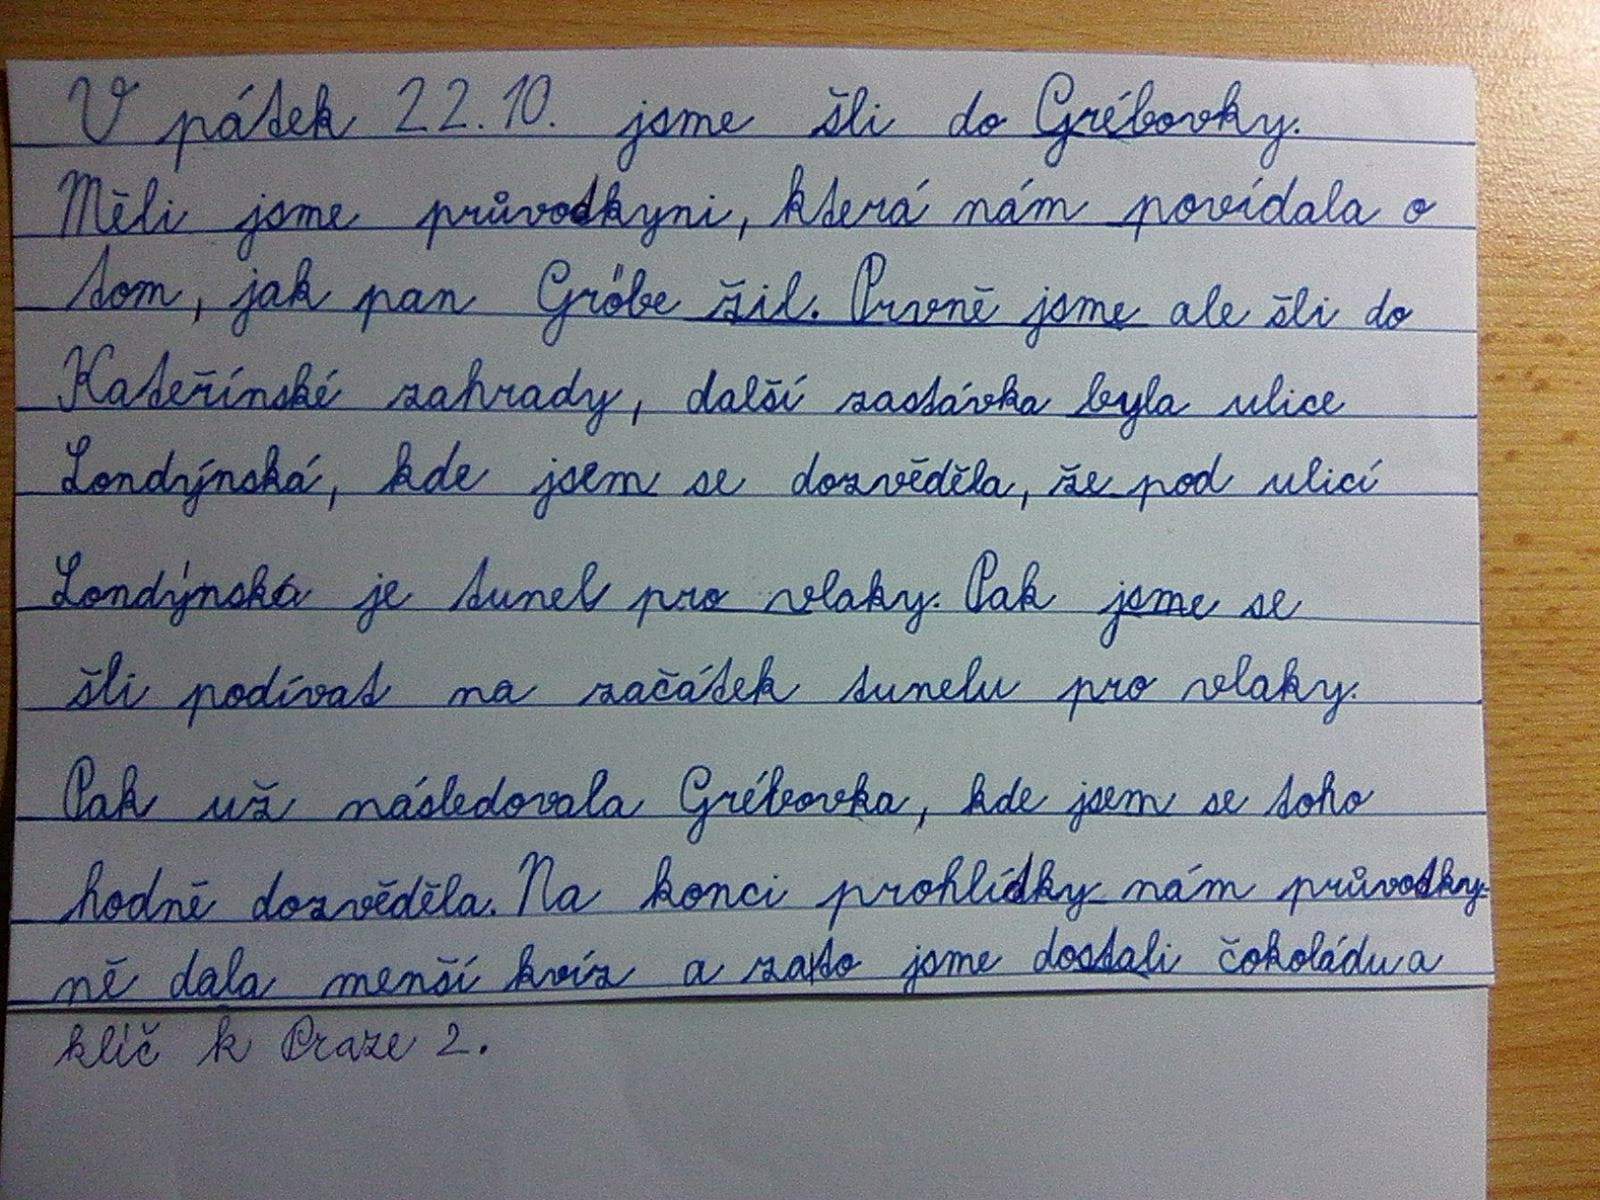 V pátek 22.10. jsme šli do Grébovky.
Měli jsme průvodkyni, která nám povídala o
tom, jak pan Gröbe žil. Prvně jsme ale šli do
Kateřínské zahrady, další zastávka byla ulice
Londýnská, kde jsem se dozvěděla, že pod ulicí
Londýnská je tunel pro vlaky. Pak jsme se
šli podívat na začátek tunelu pro vlaky.
Pak už následovala Grébovka, kde jsem se toho
hodně dozvěděla. Na konci prohlídky nám průvodky-
ně dala menší kvíz a zato jsme dostali čokoládu a
klíč k Praze 2.